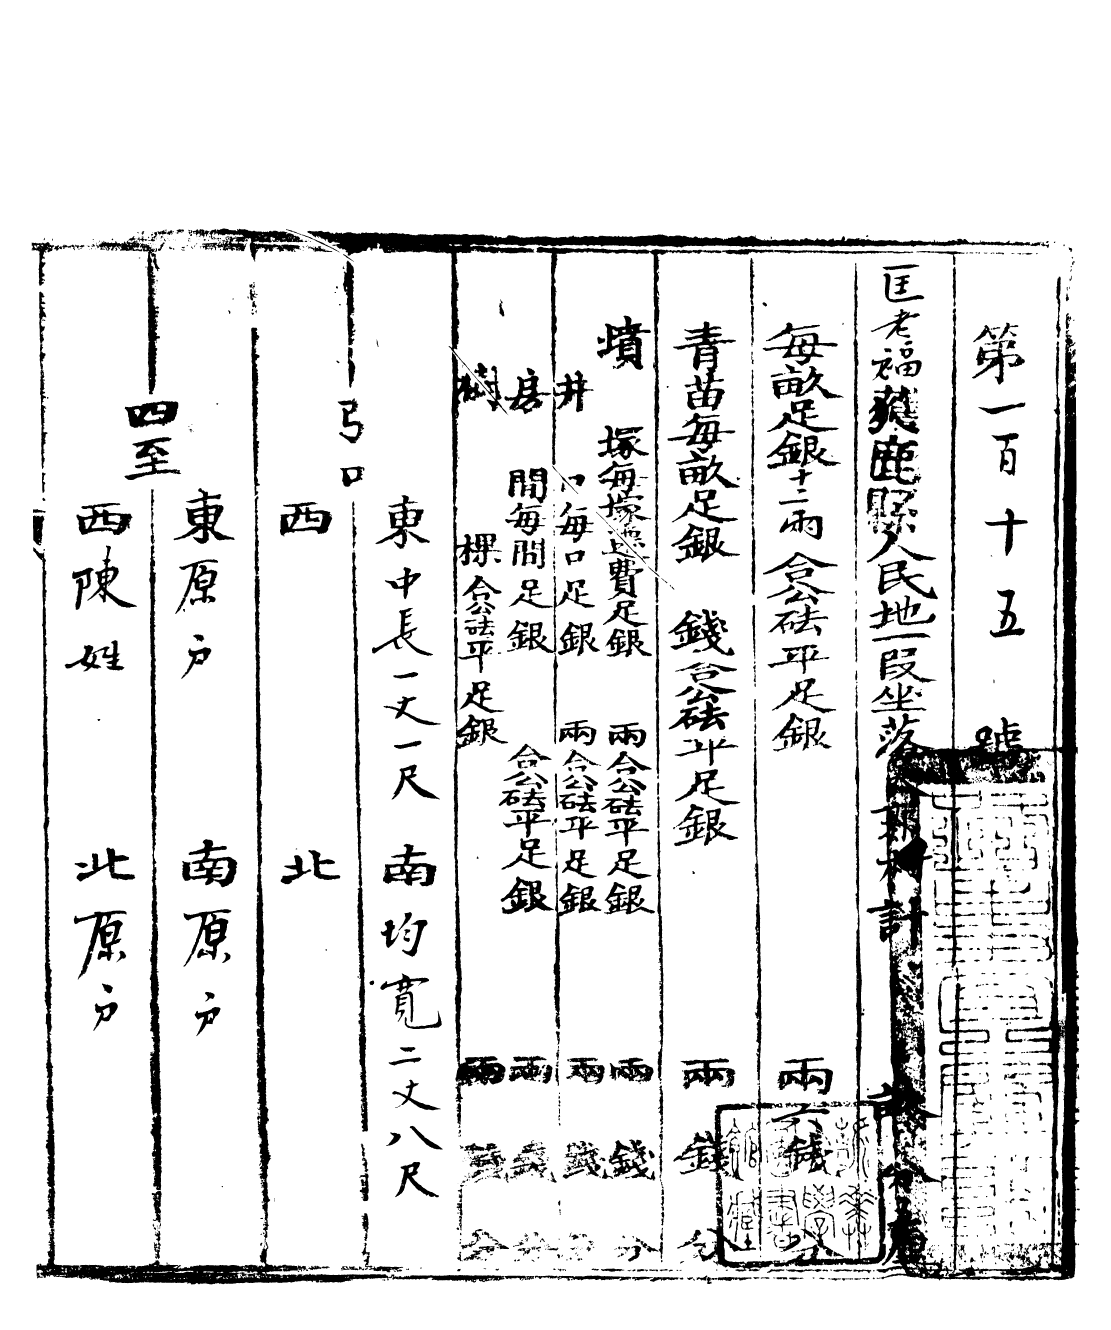 第一百十五號
匡老福獲鹿縣人民地一段坐落 村計 分
每畝足銀十二兩合公砝平足銀 兩六錢 分
青苗每畝足銀 錢合公砝平足銀 兩 錢 分
墳 塚每塚遷費足銀 兩合公砝平足銀 兩 錢 分
井 口每口足銀 兩合公砝平足銀 兩 錢 分
房 間每間足銀 合公砝平足銀 兩 錢 分
樹 棵合公砝平足銀 兩 錢 分
弓口
東中長一丈一尺 南均寬二丈八尺
西 北
四至
東原戶 南原戶
西陳姓 北原戶